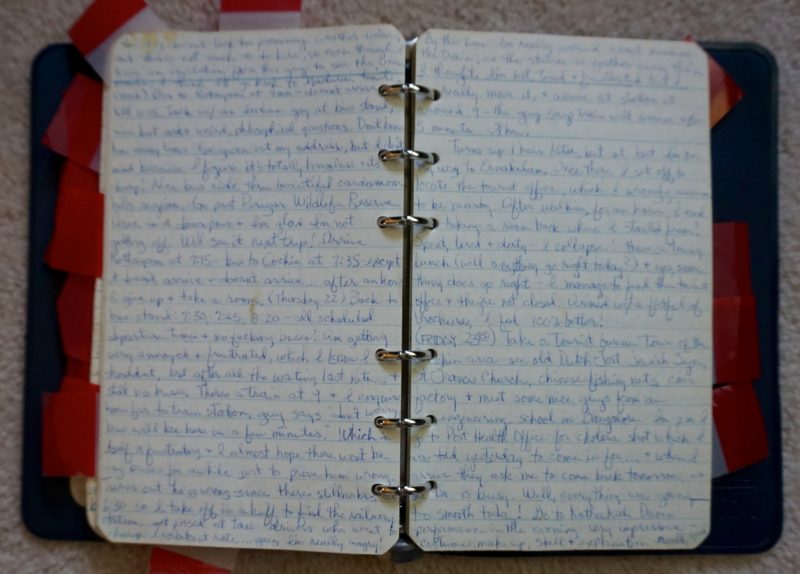 but there's not much to do here, so even though I
have no
to go back to Madurai but
what? Bus to Kottayam at 9am - doesn't arrive
till 11:15. Talk w/ an Indian guy at bus stand,
nice but asks weird, philosophical questions. Don't know
how many times I've given out my address, but I don't
mind because I figure it's totally harmless + it's
Nice bus ride thru beautiful cardamom
hills region. Go past Periyar Wildlife Reserve
and downpour + I'm glad I'm not
getting off. Will see it next trip! Arrive
Kottayam at 7:15 - bus to Cochin at 7:35 except
it doesn't arrive + doesn't arrive... after an hour
I give up + take a room. (Thursday 22) Back to
bus stand: 7:30, 7:45, 8:20 - all scheduled
departure times + no fucking buses! Am getting
very annoyed + frustrated, which I know I
shouldn't, but after all the waiting last nite... +
still no buses. There's a train at 9 + I enquire
how far to train station, guy says "don't worry
bus will be here in a few minutes." Which
itself is infuriating + I almost hope there won't be
any buses for awhile just to prove him wrong.
Turns out he is wrong since there's still no bus
8:30 so I take off in a huff to find the railway
station, get pissed at taxi drivers who want to
charge exorbitant rate... guess I'm really angry!
By this time I'm really worried about missing
the train, as the station is further away
I thought. I'm hot, tired + frustrated but I
really move it, + arrive at station at
around 9 - the guy says train will arrive after
5 minutes. Phew.
Turns up 1 hour later, but at last I'm on
my way to Ernakulam. Once there I set off to
locate the tourist office, which I wrongly assume
to be nearby. After walking for an hour, I end
up taking a room back where I started from!
Spent, tired + dirty I collapse! Have a lousy
lunch (will anything go right today?) + yes, some-
thing does go right - I manage to find the tourist
office + they're not closed. Armed w/ a fistful of
brochures, I feel 100% better!
(FRIDAY 23rd) Take a tourist bureau tour of the
Cochin area - see old Dutch Fort, Jewish Syn.,
St Francis Church, chinese fishing nets, coir
factory + met some nice guys from an
engineering school in Bangalore. In p.m. I
go to Port Health Office for cholera shot which I
was told yesterday to come in for... + when I
arrive they ask me to come back tomorrow as
Dr. is busy. Well, everything was going
too smooth today! Go to Kathakali Dance
performance in the evening, very impressive
costumes, make-up, skill +